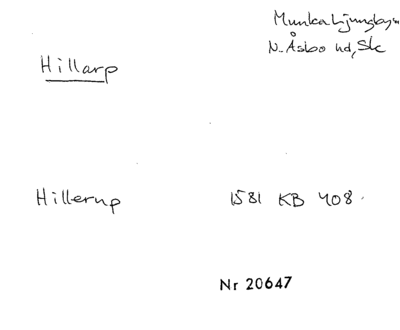 Munka Ljungby sn
N. Åsbo hd, Sk
Hillarp
Hillerup 1581 KB 408.
Nr 20647